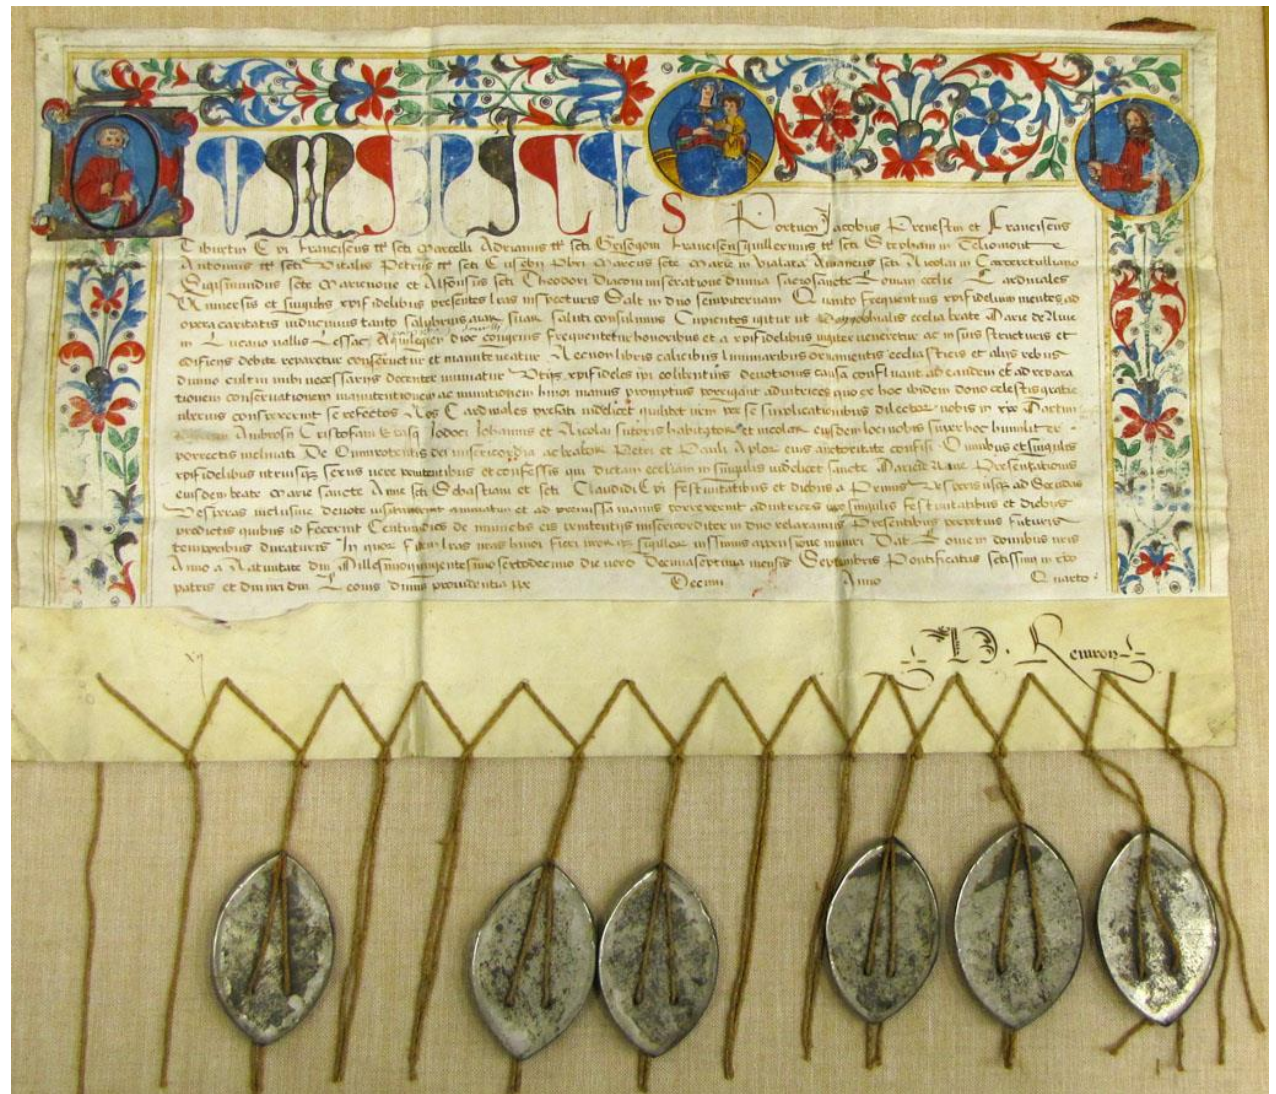 DOMINICUS
Portuen Jacobus Prenestin et Franciscus
Tiburtin Epi Franciscus tt scti Marcelli Adrianus tt scti Grisogoni Franciscusguillermus tt scti Stephani in Celiomonte
Antonius tt scti Vitalis Petrus tt scti Eusebii Pbri Marcus scte Marie in Vialata Amaneus scti Nicolai in Carceretulliano
Sigismundus scte Marienove et Alfonsus scti Theodori Diaconi miseratione divina sacrosancte Roman ecclie Cardinales
Universis et singulis xpifidelibus presentes lras inspecturis Salt in dno sempiternam Quanto frequentius xpifidelium mentes ad
opera caritatis inducimus tanto salubrius aiar suar saluti consulimus Cupientes igitur ut ecclia beate Marie de Nive
in vallis Aquilegien dioc congruis frequentetur honoribus et a xpifidelibus iugiter veneretur ac in suis structuris et
edificiis debite reparetur conservetur et manuteneatur Necnon libris calicibus luminaribus ornamentis ecclesiasticis et aliis rebus
divino cultui inibi necessariis decenter muniatur Utq xpifideles ipi eo libentius devotionis causa confluant ad eandem et ad repara
tionem conservationem manutentionem ac munitionem hmoi manus promptius porrigant adiutrices quo ex hoc ibidem dono celestis gratie
uberius conspexerint se refectos Nos Cardinales prefati videlicet quilibet nrm per se supplicationibus dilector nobis in xpo Martini
Ambrosii Cristofani Iodoci Iohannis et Nicolai sutoris habitator et incolar eiusdem loci nobis super hoc humilit er
porrectis inclinati De Omnipotentis dei misericordia ac beator Petri et Pauli Aplor eius auctoritate confisi Omnibus et singulis
xpifidelibus utriusq sexus vere penitentibus et confessis qui dictam eccliam in singulis videlicet sancte Marie de Nive Presentationis
eiusdem beate Marie sancte Anne scti Sebastiani et scti Claudii Epi festivitatibus et diebus a Primis Vesperis usq ad Secundas
Vesperas inclusive devote visitaverint annuatim et ad premissa manus porrexerint adiutrices ut pro singulis festivitatibus et diebus
predictis quibus id fecerint Centum dies de iniunctis eis penitentiis misericorditer in dno relaxamus Presentibus perpetuis futuris
temporibus duraturis In quor fidem lras nras hmoi fieri nrorq sigillor iussimus appensione muniri Dat Rome in domibus nris
Anno a Nativitate dni Millesimoquingentesimo sextodecimo die vero Decimaseptima mensis Septembris Pontificatus sctissimi in xpo
patris et dni nri dni Leonis divina providentia ppe Decimi Anno Quarto